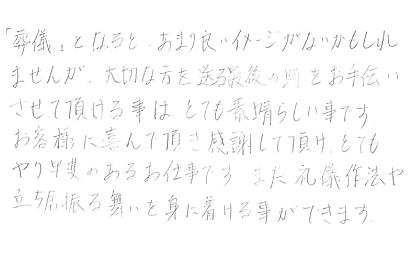 「葬儀」となると、あまり良いイメージがないかもしれ
ませんが、大切な方を送る最後の時をお手伝い
させて頂ける事は とても素晴らしい事です
お客様に喜んで頂き感謝して頂け、とても
やり甲斐のあるお仕事です また 礼儀作法や
立ち居振る舞いを身に着ける事ができます.